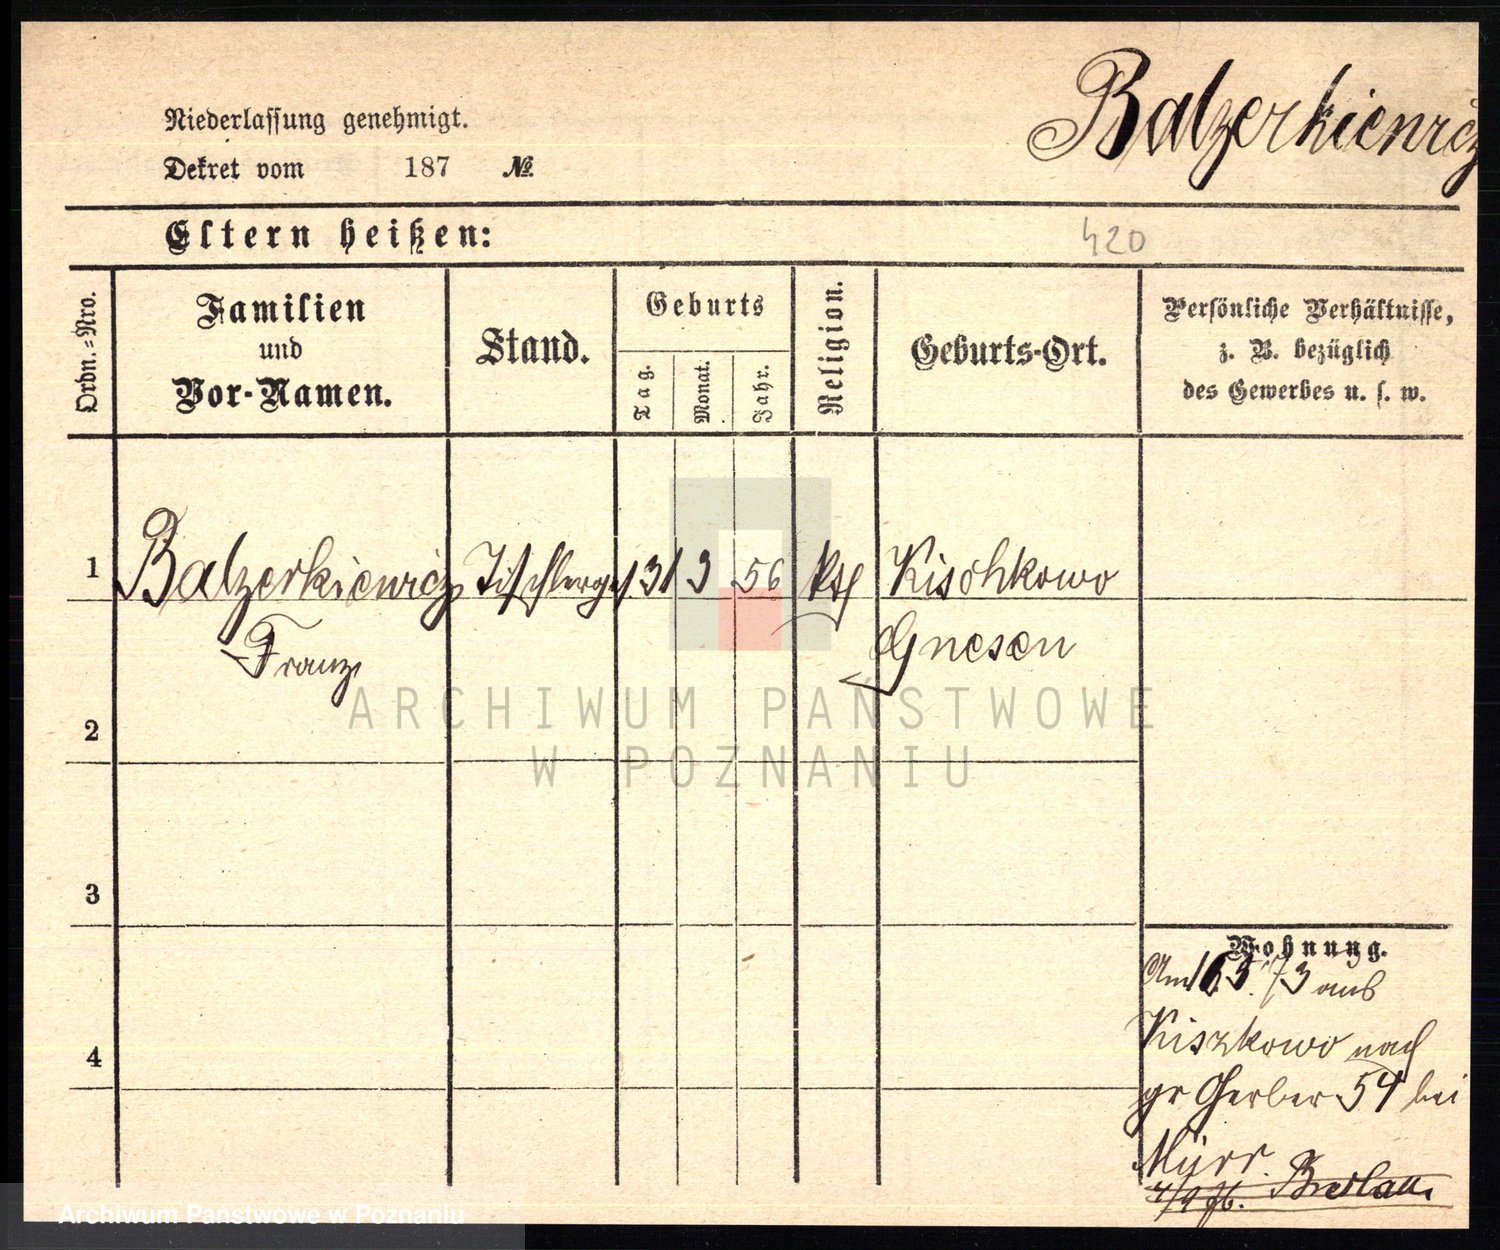 Balzerkiewicz
Niederlassung genehmigt.
Dekret vom 187 №
Eltern heißen:
420
Ordn.=Nro.
Familien
und
Vor-Namen.
Stand.
Geburts
Tag.
Monat.
Jahr.
Religion.
Geburts-Ort.
Persönliche Verhältnisse,
z. B. bezüglich
des Gewerbes u. s. w.
1
Balzerkiewicz Tischlerges 31 3 56 kth Kischkowo
Franz Gnesen
ARCHIWUM PAŃSTWOWE
W POZNANIU
2
3
4
Wohnung.
Am 5 73 aus
Kiszkowo nach
gr Gerber 54 bei
Mürr.
4/9 76. Breslau.
Archiwum Państwowe w Poznaniu